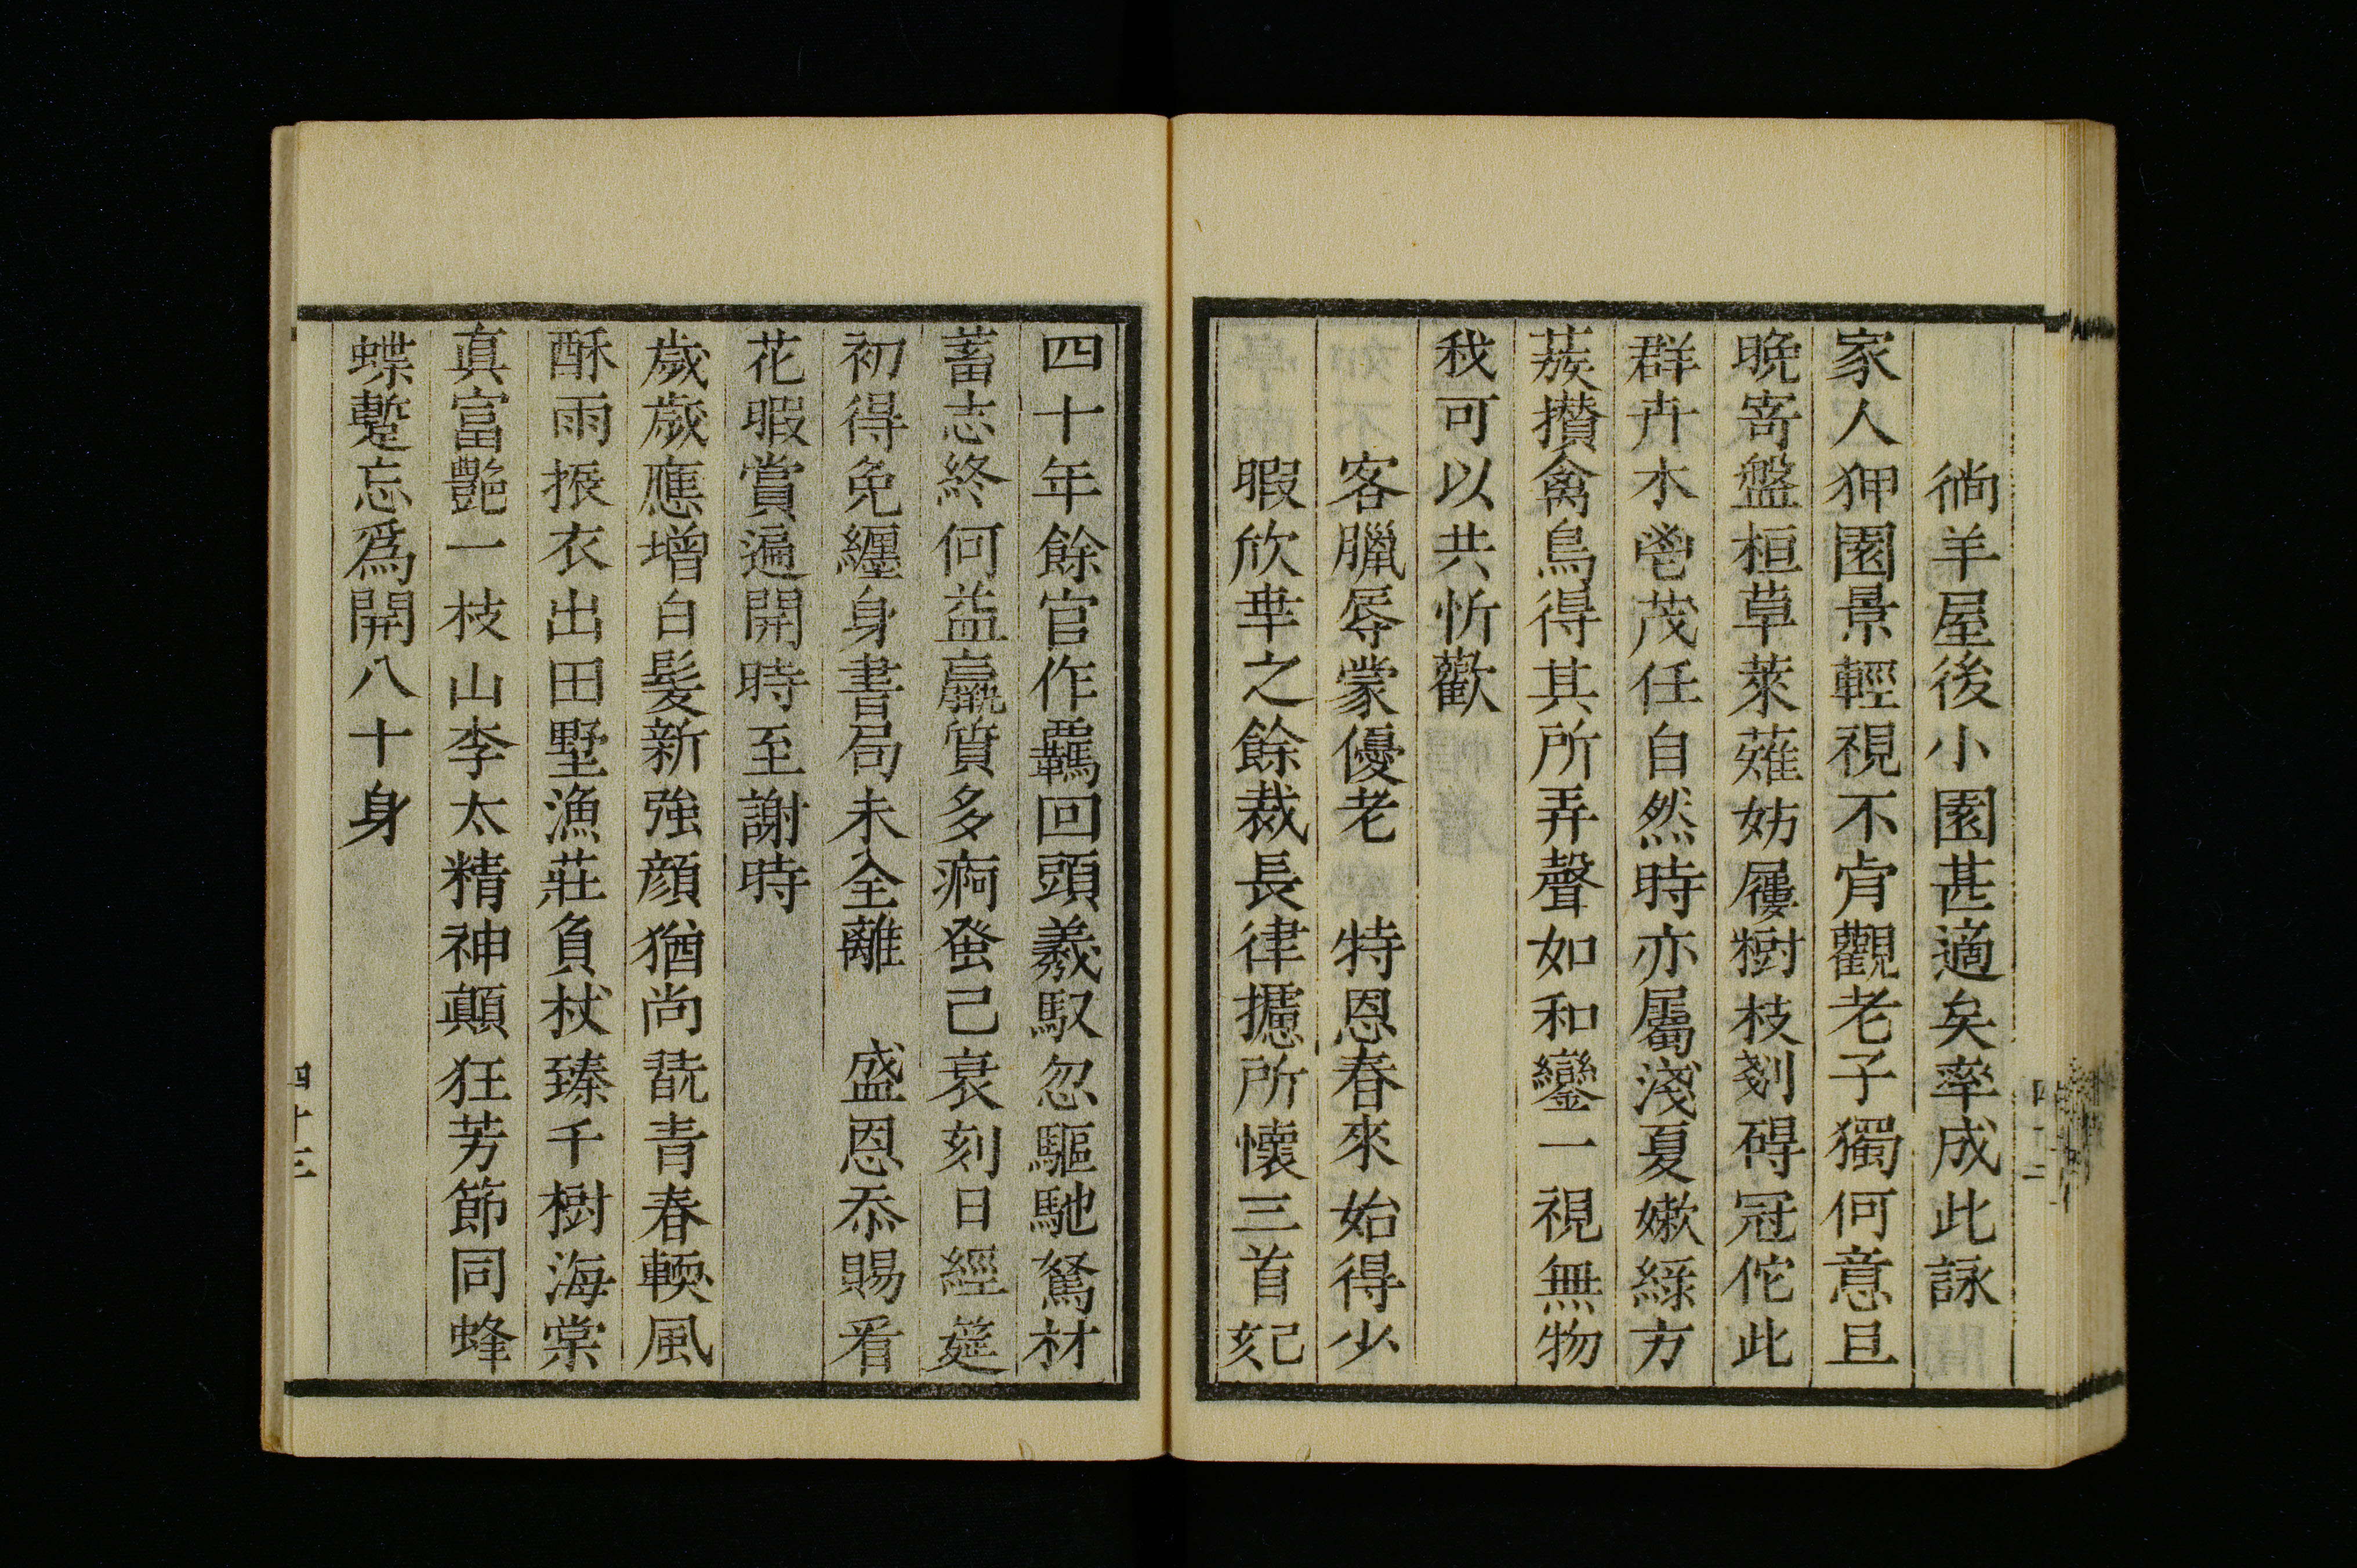 徜羊屋後小園甚適矣率成此詠
家人狎園景輕視不肯觀老子獨何意旦
晩寄盤桓草萊薙妨屨樹枝剗碍冠佗此
群卉木鬯茂任自然時亦屬淺夏嫰綠方
蔟攅禽鳥得其所弄聲如和鑾一視無物
我可以共忻歡
客臘辱蒙優老 特恩春來始得少
暇欣幸之餘裁長律攄所懷三首㐫
四十年餘官作羈回頭羲馭忽驅馳駑材
蓄志終何益羸質多痾蚤己衰刻日經筵
初得免纏身書局未全離 盛恩忝賜看
花暇賞遍開時至謝時
歲歲應增白髮新強顔猶尚翫青春輭風
酥雨振衣出田墅漁莊負杖臻千樹海棠
真富艷一枝山李太精神顚狂芳節同蜂
蝶蹔忘爲開八十身
四十三